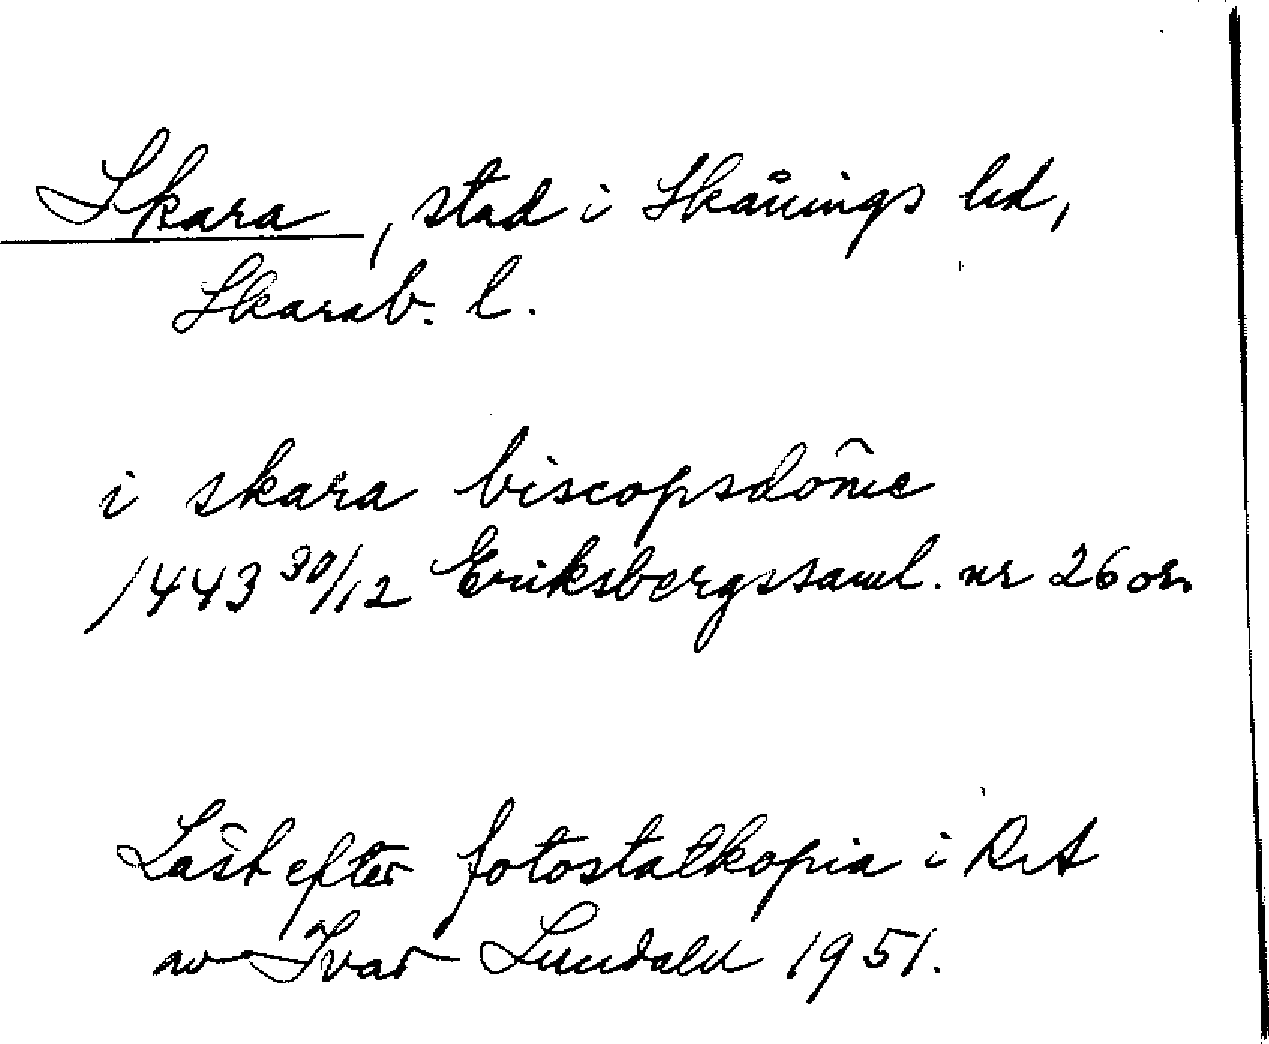 Skara, stad i Skånings hd,
Skarab. l.
i skara biscopsdôme
1443 30/12 Eriksbergssaml. nr 26 or.
Läst efter fotostatkopia i RA
av Ivar Lundahl 1951.